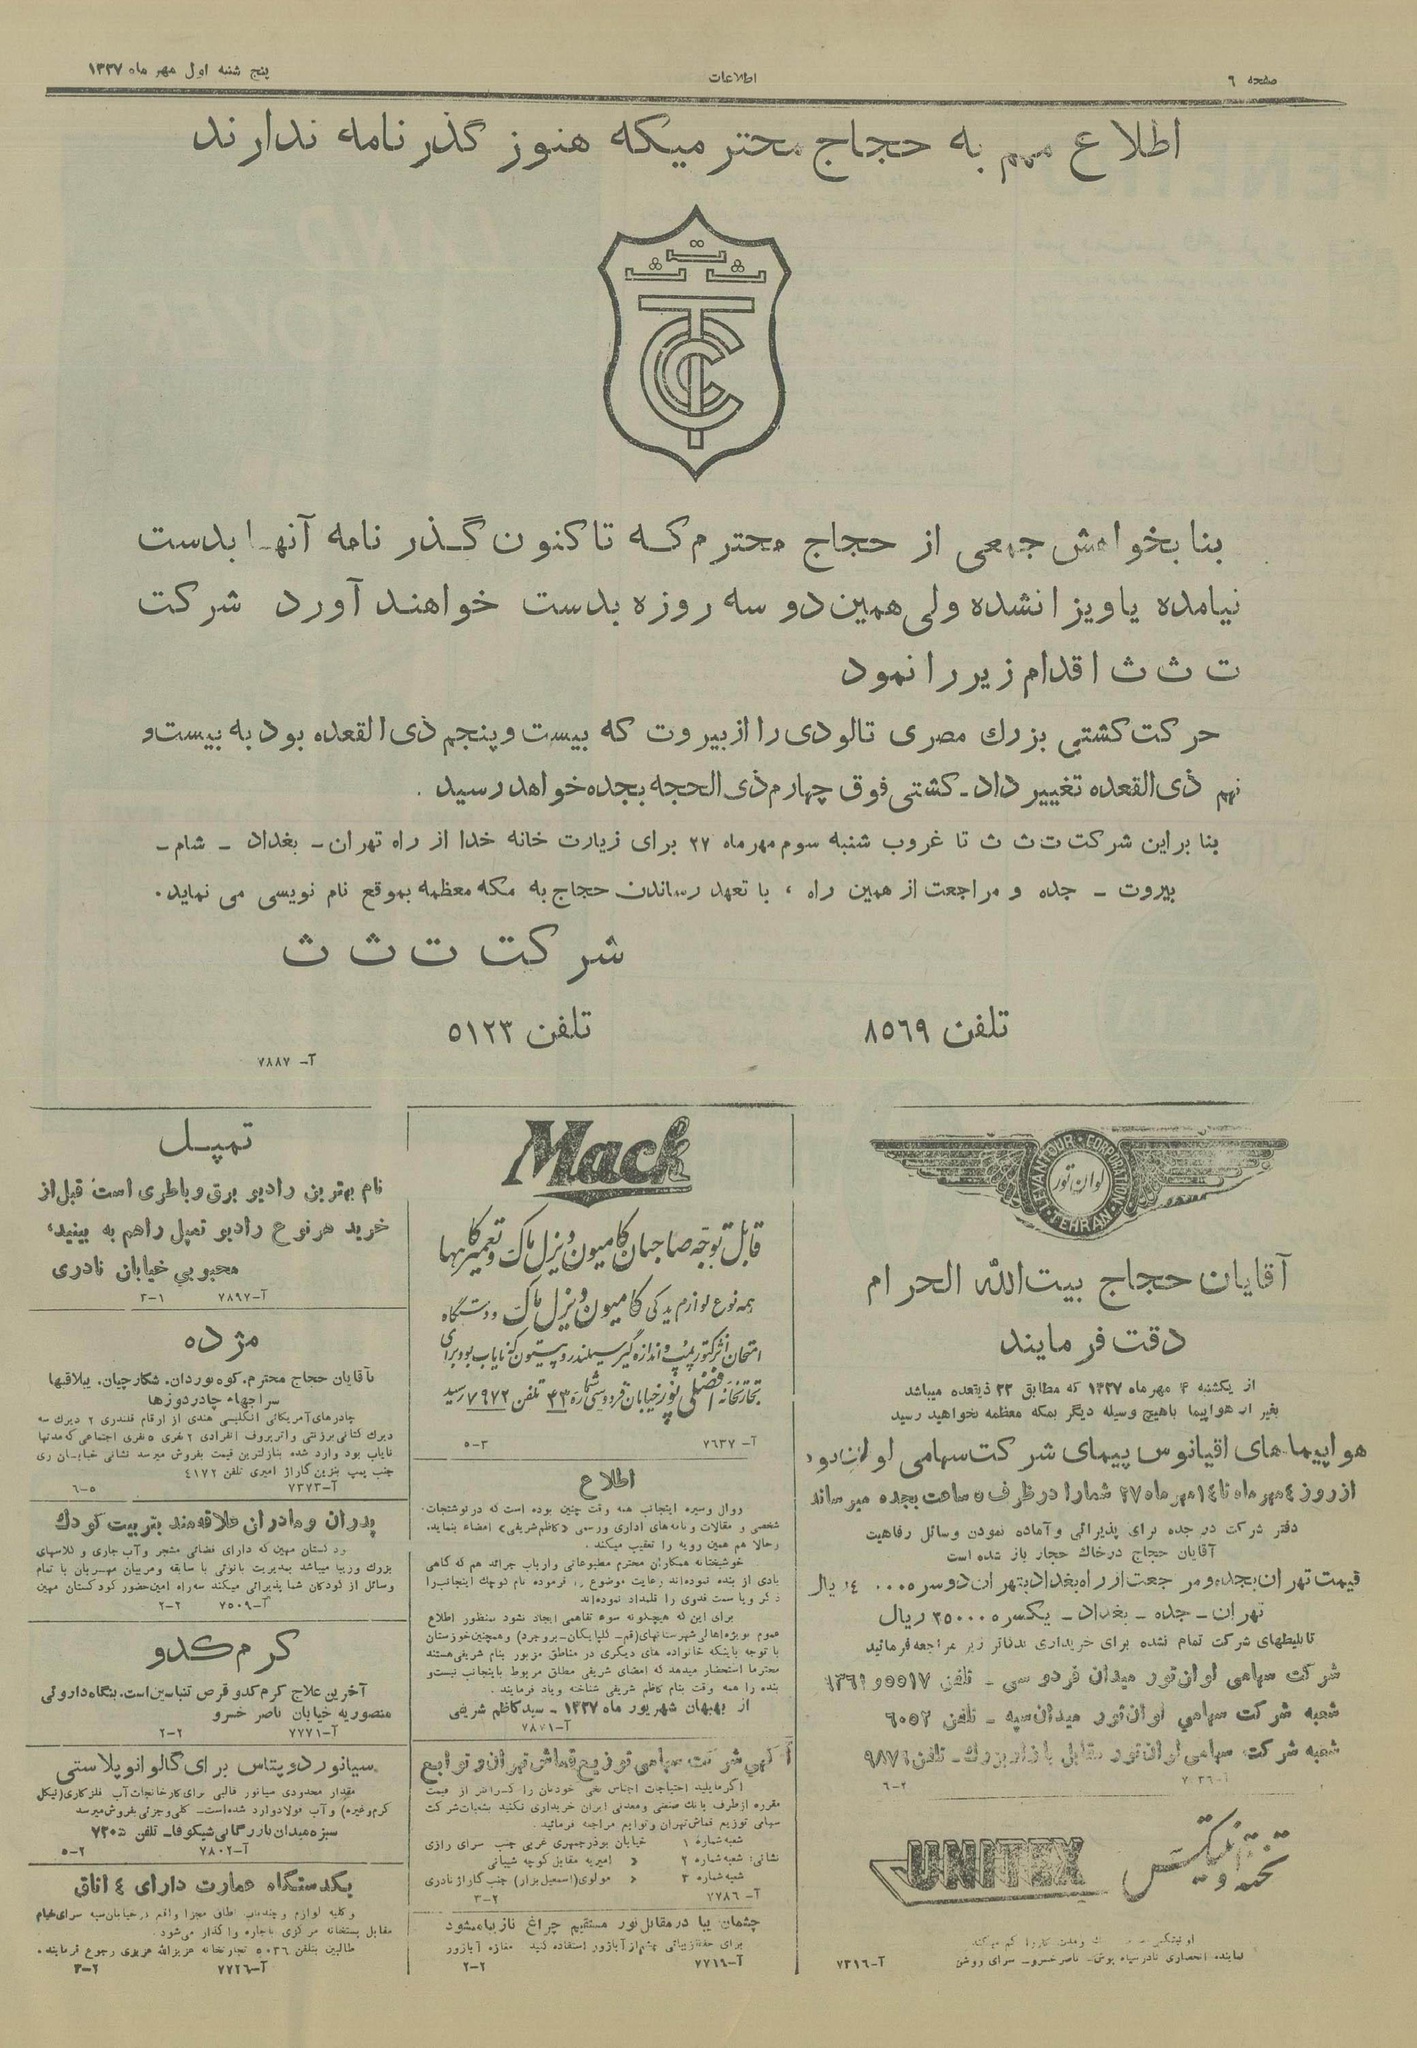 صفحه ٦
اطلاعات
پنج شنبه اول مهر ماه ١٣٢٧
اطلاع مهم به حجاج محترمیکه هنوز گذر نامه ندارند
ت
ث ث
TCC
بنا بخواهش جمعی از حجاج محترم که تا کنون گذر نامه آنها بدست
نیامده یا ویزا نشده ولی همین دو سه روزه بدست خواهند آورد شرکت
ت ث ث اقدام زیر را نمود
حرکت کشتی بزرك مصری تالودی را از بیروت که بیست و پنجم ذی القعده بود به بیست و
نهم ذی القعده تغییر داد ـ کشتی فوق چهارم ذی الحجه بجده خواهد رسید .
بنا بر این شرکت ت ث ث تا غروب شنبه سوم مهر ماه ٢٧ برای زیارت خانه خدا از راه تهران ـ بغداد ـ شام ـ
بیروت ـ جده و مراجعت از همین راه ، با تعهد رساندن حجاج به مکه معظمه بموقع نام نویسی می نماید .
شرکت ت ث ث
تلفن ٨٥٦٩
تلفن ٥١٢٣
آ- ٧٨٨٧
LEVANTOUR CORPORATION
لوان تور
TEHRAN
آقایان حجاج بیت الله الحرام
دقت فرمایند
از یکشنبه ٤ مهر ماه ١٣٢٧ که مطابق ٢٢ ذیقعده میباشد
بغیر از هواپیما باهیچ وسیله دیگر بمکه معظمه نخواهید رسید
هواپیما های اقیانوس پیمای شرکت سهامی لوان تور
از روز ٤ مهر ماه تا ١٤ مهر ماه ٢٧ شما را در ظرف ٥ ساعت بجده میرساند
دفتر شرکت در جده برای پذیرائی و آماده نمودن وسائل رفاهیت
آقایان حجاج در خاك حجاز باز شده است
قیمت تهران بجده و مراجعت از راه بغداد بتهران دوسره ریال
تهران ـ جده ـ بغداد ـ یکسره ٢٥٠٠٠ ریال
تا بلیطهای شرکت تمام نشده برای خریداری بدفاتر زیر مراجعه فرمائید
شرکت سهامی لوان تور میدان فردوسی ـ تلفن ٥٥١٧ و ١٣٦١
شعبه شرکت سهامی لوان تور میدان سپه ـ تلفن ٦٠٥٢
شعبه شرکت سهامی لوان تور مقابل بازار بزرك ـ تلفن ٩٨٧١
٦-٢
تخته یونیتکس
UNITEX
نماینده انحصاری نادر سیاه پوش ـ ناصر خسرو ـ سرای روشن
آ-٧٣١٦
Mack
قابل توجه صاحبان کامیون دیزل ماک و تعمیرگاهها
همه نوع لوازم یدکی کامیون دیزل ماک و دستگاه
امتحان انژکتور پمپ و اندازه گیر سیلندر و پیستون که نایاب بود برای
تجارتخانه افضلی پور خیابان فردوسی شماره ٤٣ تلفن ٧٩٧٢ رسید
آ- ٧٦٣٧
٥-٣
اطلاع
روال وسیره اینجانب همه وقت چنین بوده است که در نوشتجات
شخصی و مقالات و نامه های اداری و رسمی «کاظم شریفی» امضاء بنماید.
و حالا هم همین رویه را تعقیب میکند .
خوشبختانه همکاران محترم مطبوعاتی وارباب جرائد هم که گاهی
یادی از بنده نموده اند رعایت موضوع را فرموده نام کوچك اینجانب را
ذکر و یا سمت فدوی را قلمداد نموده اند
برای این که هیچگونه سوء تفاهمی ایجاد نشود بمنظور اطلاع
عموم بویژه اهالی شهرستانهای (قم ـ گلپایگان ـ بروجرد) و همچنین خوزستان
با توجه باینکه خانواده های دیگری در مناطق مزبور بنام شریفی هستند
محترما استحضار میدهد که امضای شریفی مطلق مربوط باینجانب نیست و
بنده را همه وقت بنام کاظم شریفی شناخته و یاد فرمایند .
از بهبهان شهریور ماه ١٣٢٧ ـ سید کاظم شریفی
آ-٧٨٧١
آگهی شرکت سهامی توزیع قماش تهران و توابع
اگر مایلید احتیاجات اجناس نخی خودتان را از قیمت
مقرره از طرف بانك صنعتی و معدنی ایران خریداری نکنید بشعبات شرکت
سهامی توزیع قماش تهران و توابع مراجعه فرمائید .
شعبه شماره ١ خیابان بوذرجمهری غربی جنب سرای رازی
نشانی: شعبه شماره ٢ « امیریه مقابل کوچه شیبانی
شعبه شماره ٣ « مولوی (اسمعیل بزاز) جنب گاراژ نادری
آ- ٧٧٨٦
٣-٢
چشمان زیبا در مقابل نور مستقیم چراغ نازیبا میشود
برای حفظ زیبائی چشم از آباژور استفاده کنید مغازه آباژور
آ-٧٧١٦
٢-٢
تمپل
نام بهترین رادیو برق و باطری است قبل از
خرید هر نوع رادیو تمپل را هم به بینید،
محبوبی خیابان نادری
آ-٧٨٩٧
٣-١
مژده
بآقایان حجاج محترم، کوه نوردان، شکارچیان، ییلاقیها
سراجها، چادر دوزها
چادرهای آمریکائی انگلیسی هندی از ارقام قلندری ٢ دیرك سه
دیرك کتانی برزنتی واترپروف انفرادی ٢ نفری ٥ نفری اجتماعی که مدتها
نایاب بود وارد شده بنازلترین قیمت بفروش میرسد نشانی خیابان ری
جنب پمپ بنزین گاراژ امیری تلفن ٤١٧٢
آ-٧٣٧٣
٦-٥
پدران و مادران علاقه مند بتربیت کودك
کودکستان مهین که دارای فضائی مشجر و آب جاری و کلاسهای
بزرك و زیبا میباشد بمدیریت بانوئی با سابقه و مربیان مهربان با تمام
وسائل از کودکان شما پذیرائی میکند سه راه امین حضور کودکستان مهین
آ-٧٥٠٩
٢-٢
کرم کدو
آخرین علاج کرم کدو قرص تنباسین است. بنگاه داروئی
منصوریه خیابان ناصر خسرو
آ-٧٧٧١
٢-٢
سیانور دوپتاس برای گالوانوپلاستی
مقدار محدودی سیانور قالبی برای کارخانجات آب فلزکاری (نیکل
کرم وغیره) و آب فولاد وارد شده است ـ کلی و جزئی بفروش میرسد
سبزه میدان بازرگانی شیکوفا ـ تلفن ٧٢٠٥
آ-٧٨٠٢
٥-٢
یکدستگاه عمارت دارای ٤ اتاق
و کلیه لوازم و چند باب اطاق مجزا واقع در خیابان سپه سرای خیام
مقابل پستخانه مرکزی باجاره واگذار می شود.
طالبین بتلفن ٥٠٣٦ تجارتخانه عزیزالله عزیزی رجوع فرمایند .
آ-٧٧٢٦
٣-٢